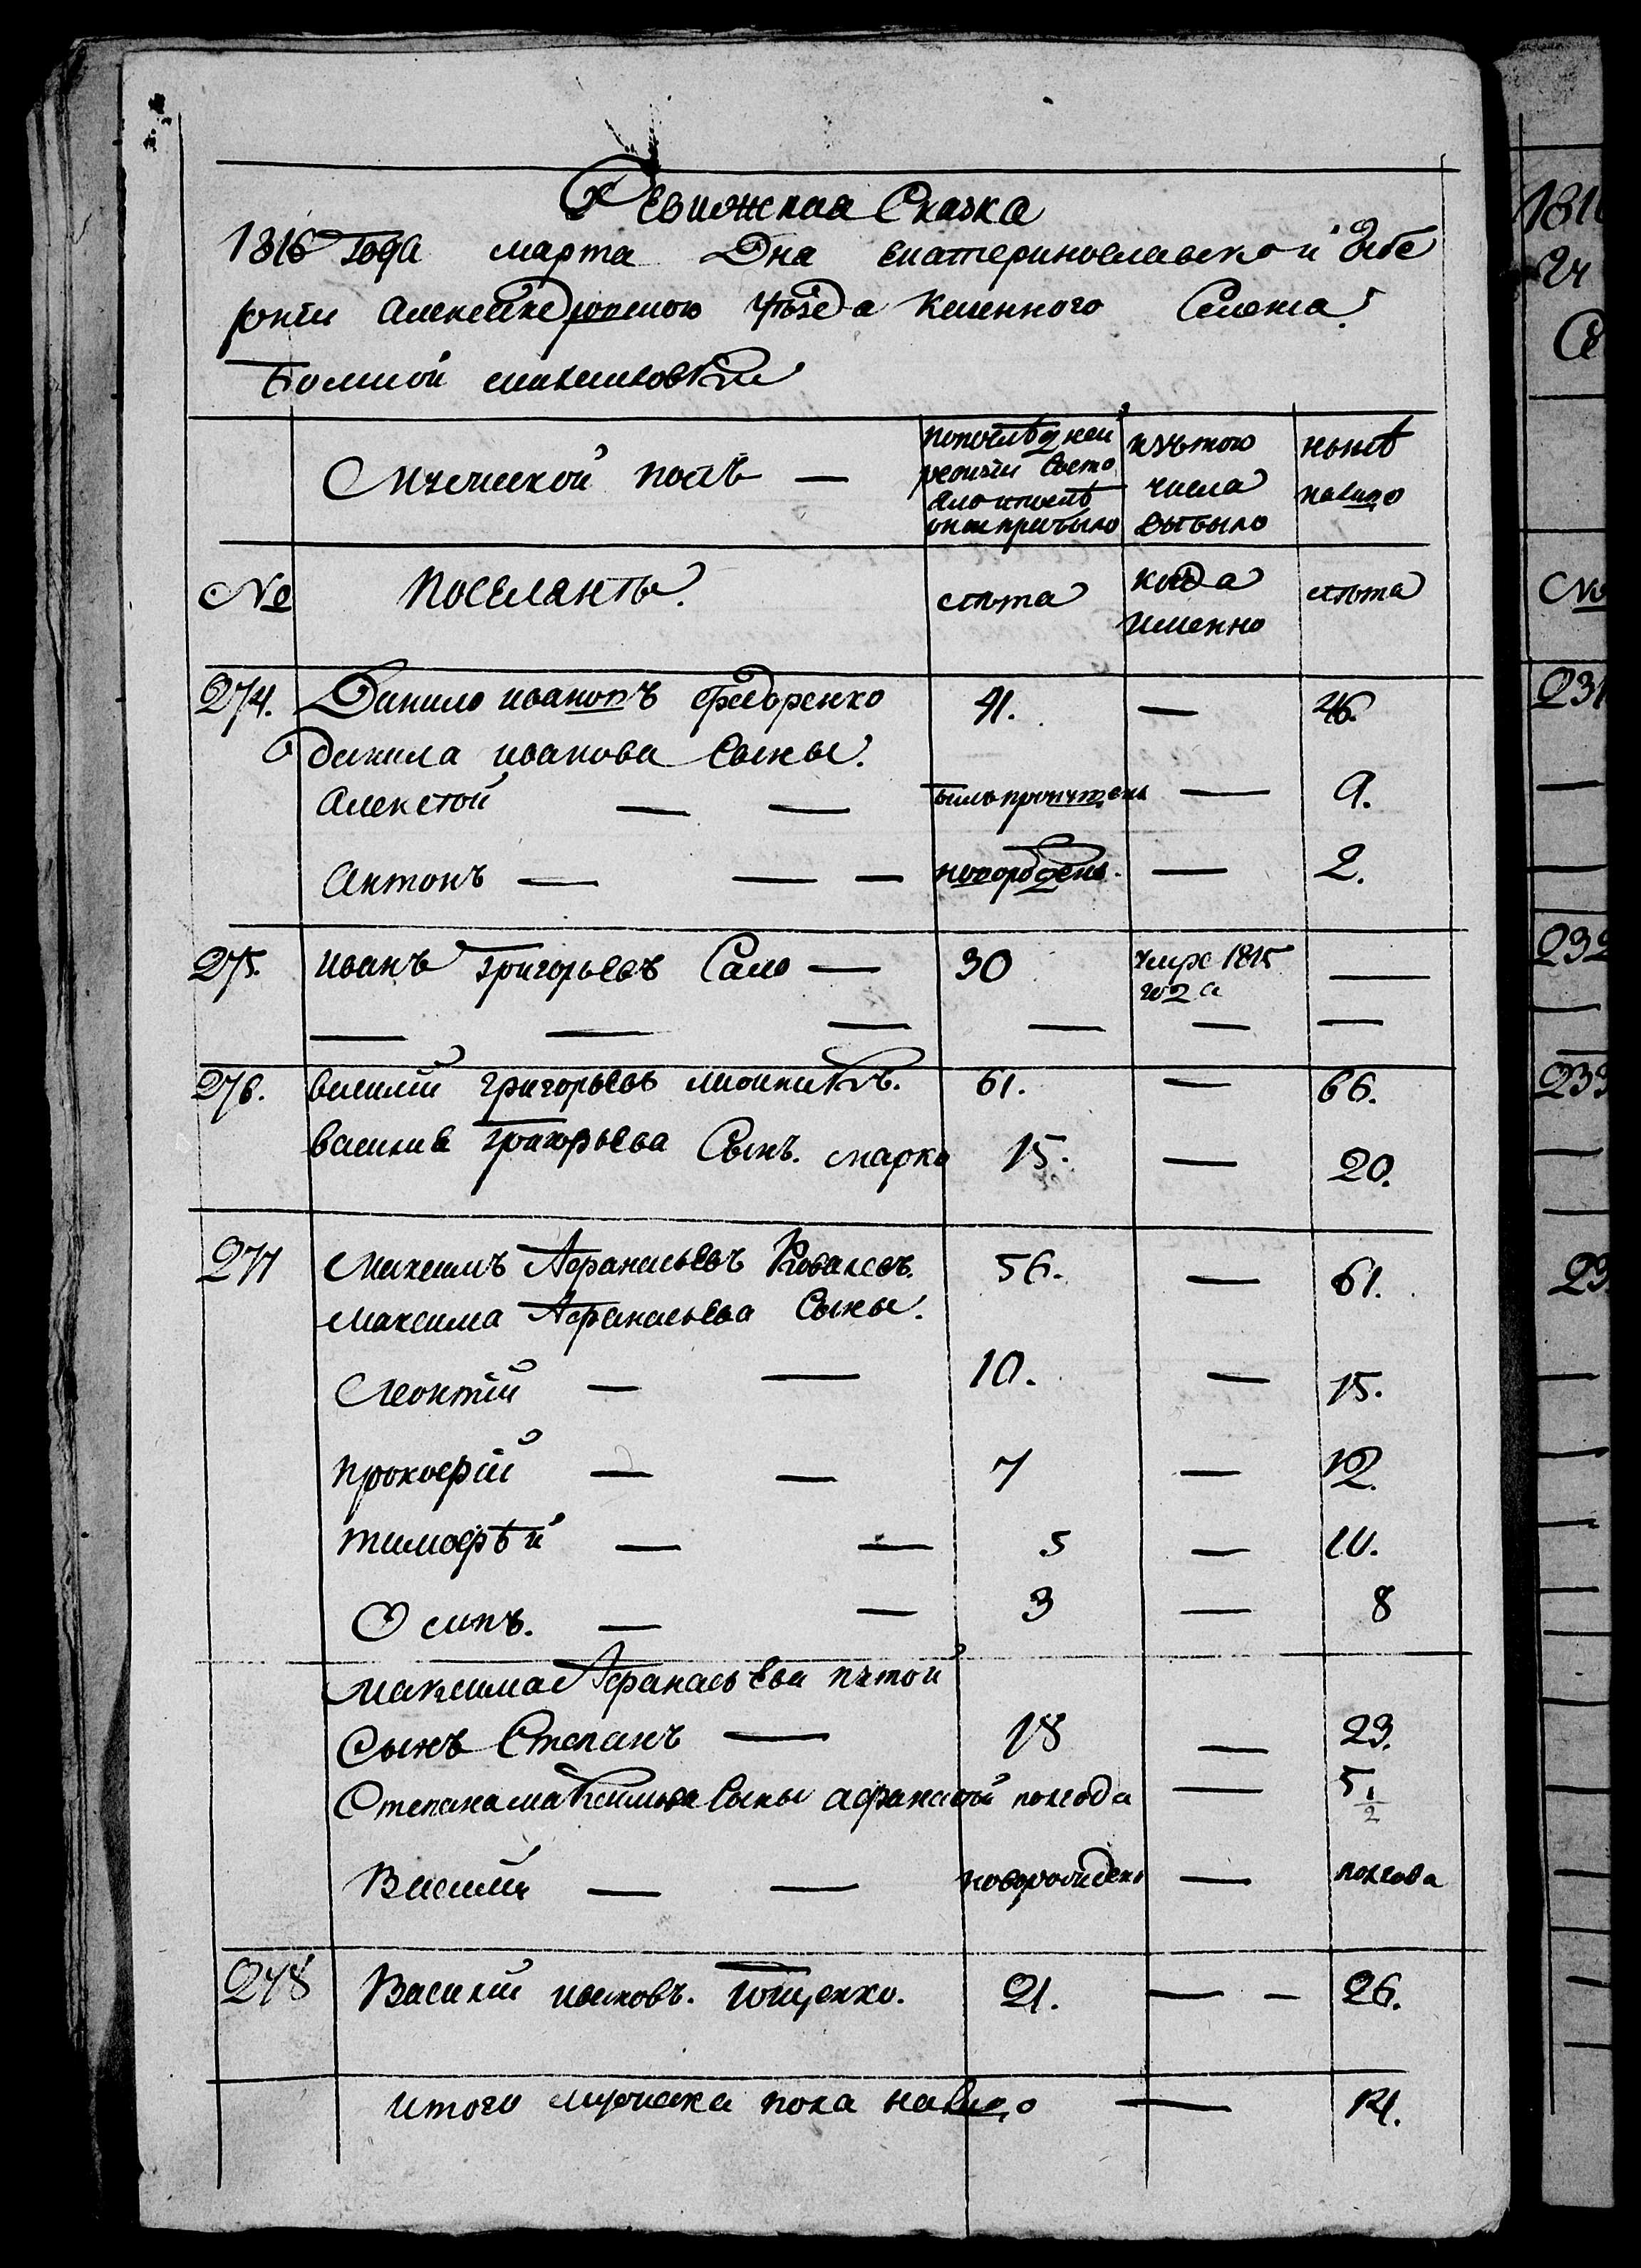 Ревижская Сказка
1816 Года марта Дня екатеринославской Губе
рнии Александровского уезда Казенного Селения
Большой михайловки
Мужеской полъ —
по последней ревизии состо яло и после оной прибыло
изъ того числа выбыло
ныне налицо
№ Поселяне. лета когда именно лета
274. Данило ивановъ федоренко 41. — 46.
данила иванова Сыны.
Алексей — — былъ пропущенъ — 9.
Антонъ — — — новорожденъ. — 2.
275. иванъ григорьевъ Сало — 30 умре 1815 года —
— — — — — —
276. василий григорьевъ 61. — 66.
василия григорьева Сынъ. марко 15. — 20.
277 Максимъ Афанасьевъ Ковалевъ. 56. — 61.
Максима Афанасьева Сыны.
Леонтий — — 10. — 15.
прокофий — — 7 — 12.
тимофей — — 5 — 10.
Осипъ. — — 3 — 8
Максима Афанасьева пятой
Сынъ Степанъ — 18 — 23.
Степана максимова Сыны афанасий полгода — 5 1/2
Василий — — новорожденъ — полгода
278 Василий ивановъ. гощенко. 21. — – 26.
итого мужеска пола налицо — 14.
1816
№
231
232
233